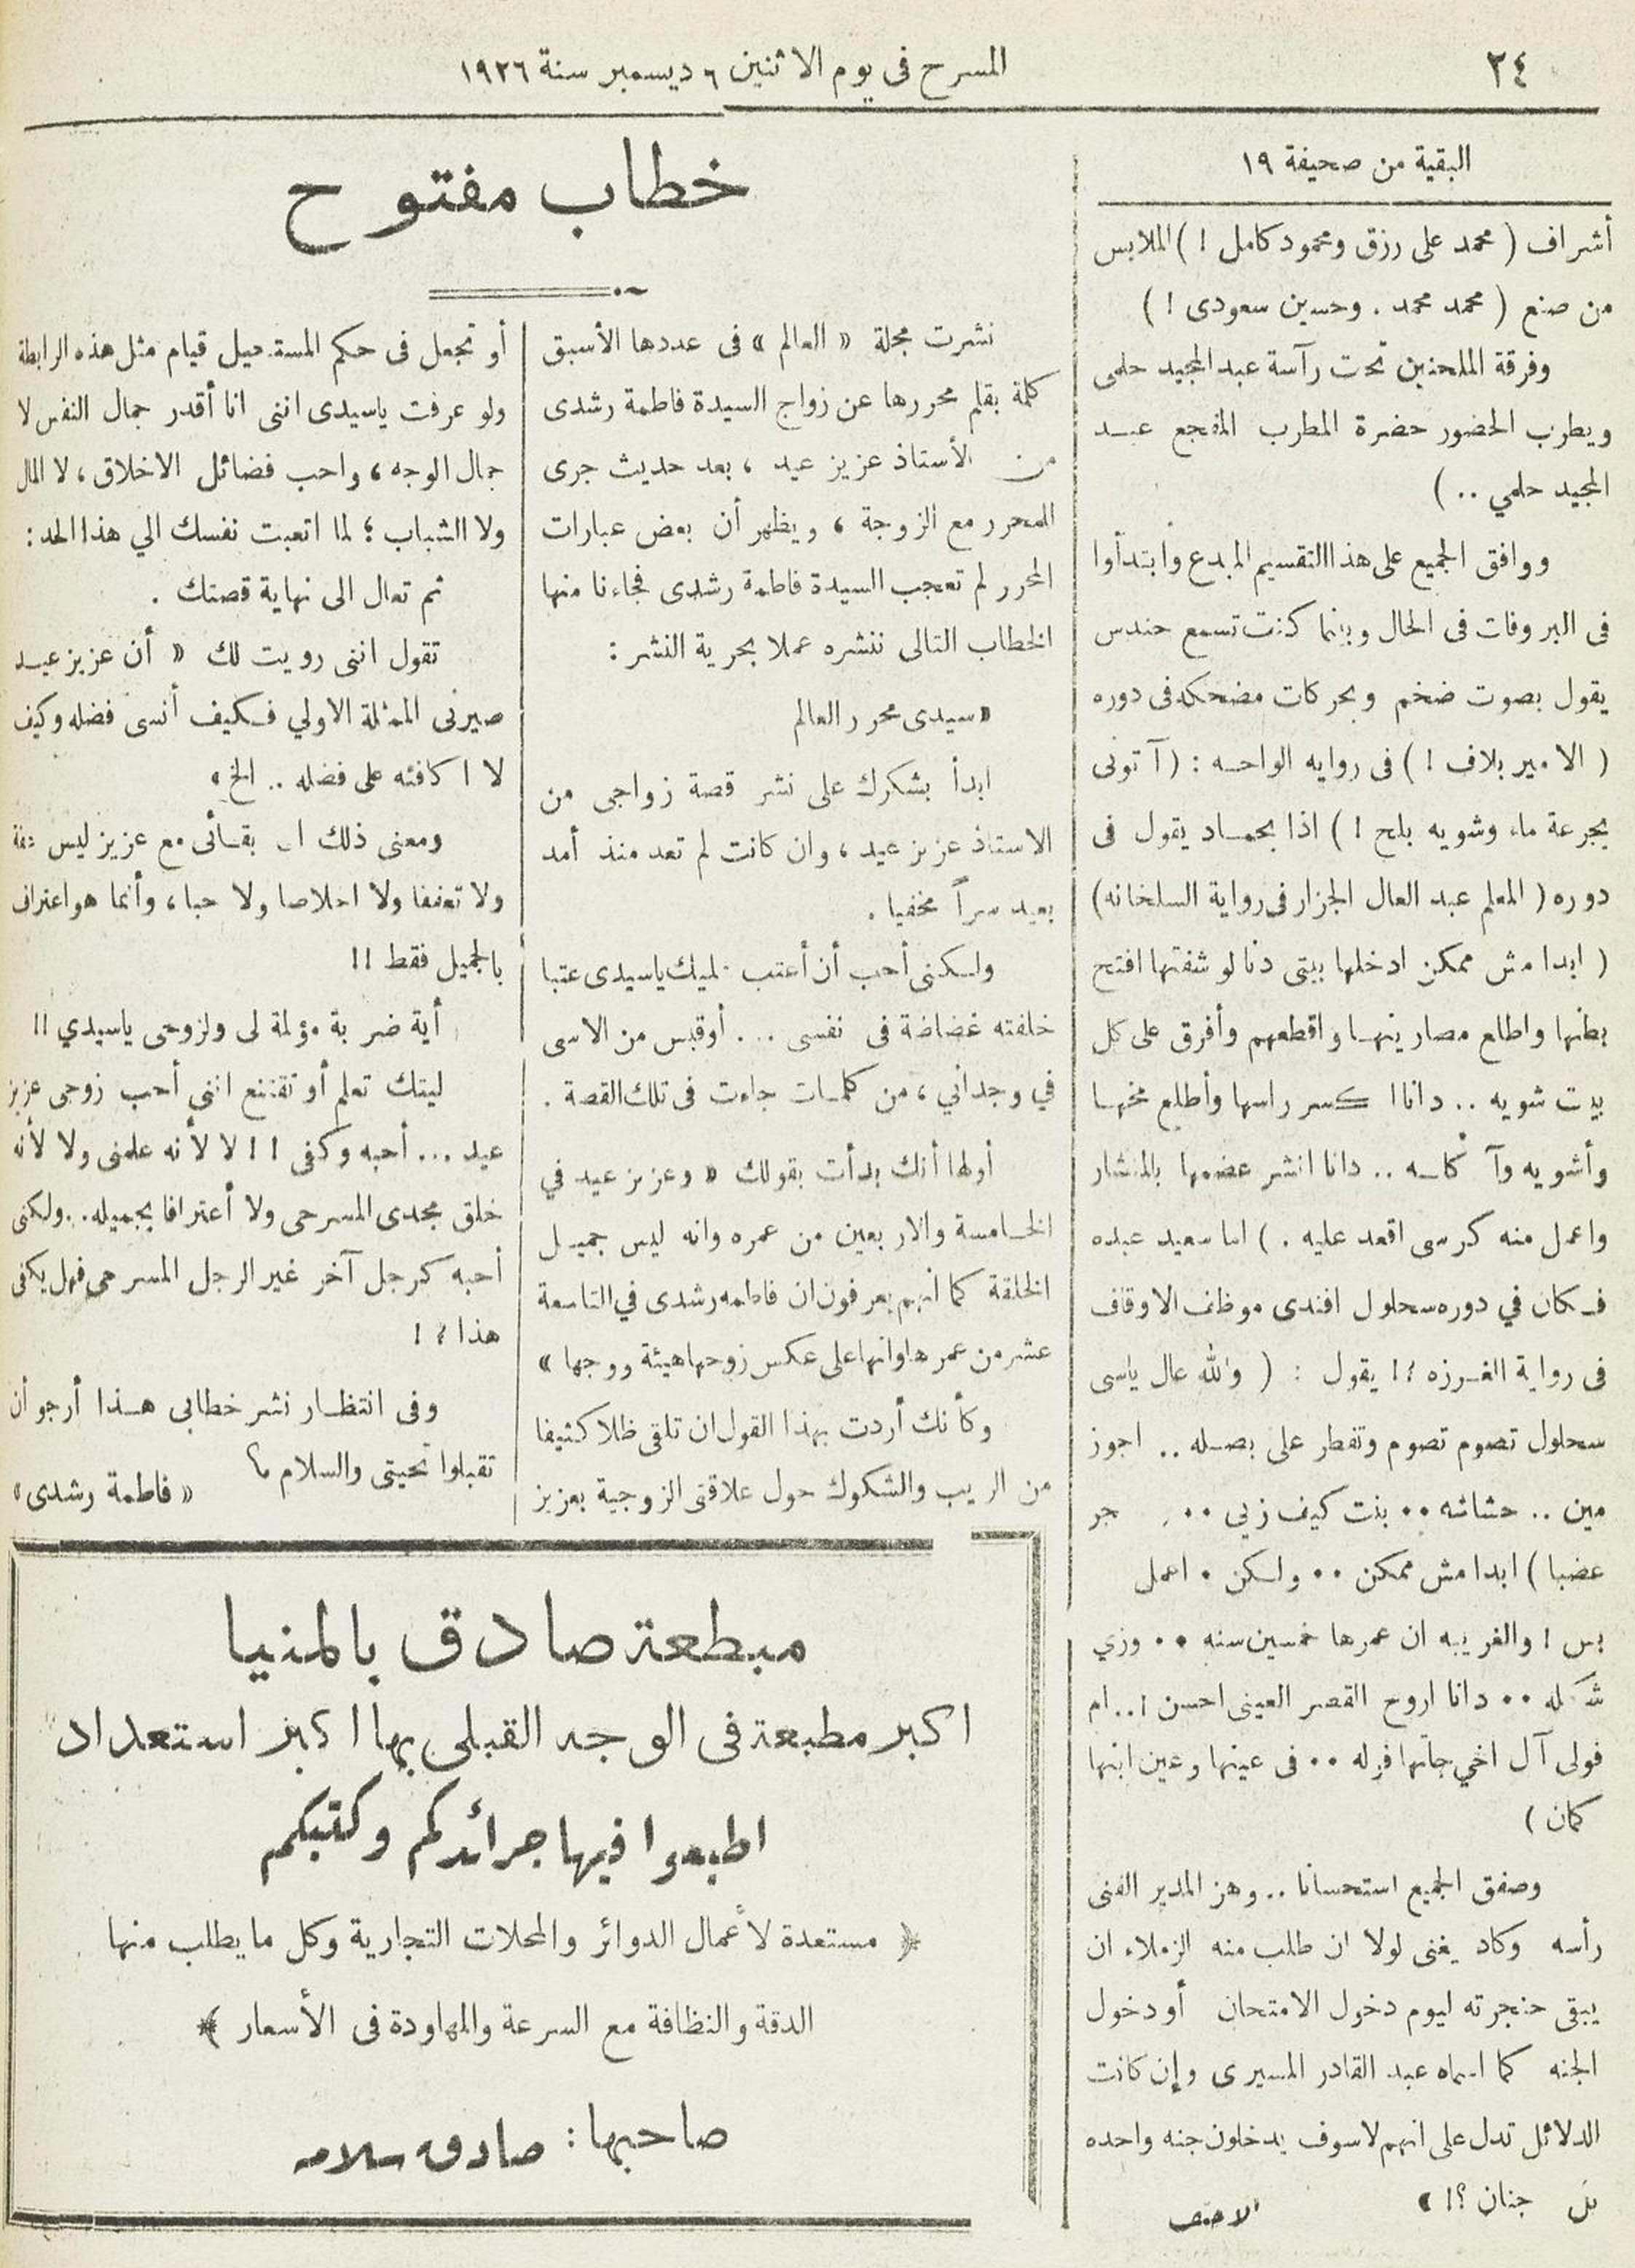 ٢٤
المسرح فى يوم الاثنين ٦ ديسمبر سنة ١٩٢٦
البقية من صحيفة ١٩
أشراف ( محمد على رزق ومحمود كامل ! ) الملابس
من صنع ( محمد محمد . وحسين سعودى ! )
وفرقة الملحنين تحت رآسة عبد المجيد حلمى
ويطرب الحضور حضرة المطرب المفجع عبد
المجيد حلمي .. )
ووافق الجميع على هذا التقسيم المبدع وابتدأوا
فى البروفات فى الحال وبينما كنت تسمع حندس
يقول بصوت ضخم وبحركات مضحكه فى دوره
( الامير بلاف ! ) فى روايه الواحه : ( آتونى
بجرعة ماء وشويه بلح ! ) اذا بحماد يقول فى
دوره ( المعلم عبد العال الجزار فى رواية السلخانه )
( ابدا مش ممكن ادخلها بيتى دنا لو شفتها افتح
بطنها واطلع مصارينها واقطعهم وأفرق على كل
بيت شويه .. دانا اكسر راسها وأطلع مخها
وأشويه وآكله .. دانا انشر عضمها بالمنشار
واعمل منه كرسى اقعد عليه . ) اما سعيد عبده
فكان في دوره سحلول افندى موظف الاوقاف
فى رواية الغرزه !! يقول : ( والله عال ياسى
سحلول تصوم تصوم وتفطر على بصله .. اجوز
مين .. حشاشه .. بنت كيف زيى ..
عضبا ) ابدا مش ممكن .. ولكن . اعمل
بس ! والغريبه ان عمرها خمسين سنه .. وزي
شكله .. دانا اروح القصر العينى احسن ! .. ام
فولى آل اخي جاتها فوله .. فى عينها وعين ابنها
كمان )
وصفق الجميع استحسانا .. وهز المدير الفنى
رأسه وكاد يغنى لولا ان طلب منه الزملاء ان
يبقى حنجرته ليوم دخول الامتحان أو دخول
الجنه كما اسماه عبد القادر المسيرى وإن كانت
الدلائل تدل على انهم لاسوف يدخلون جنه واحده
بل جنان ؟! »
خطاب مفتوح
نشرت مجلة « العالم » فى عددها الأسبق
كلمة بقلم محررها عن زواج السيدة فاطمة رشدى
من الأستاذ عزيز عيد ، بعد حديث جرى
للمحرر مع الزوجة ، ويظهر أن بعض عبارات
المحرر لم تعجب السيدة فاطمة رشدى فجاءنا منها
الخطاب التالى ننشره عملا بحرية النشر :
« سيدى محرر العالم
ابدأ بشكرك على نشر قصة زواجى من
الاستاذ عزيز عيد ، وان كانت لم تعد منذ أمد
بعيد سراً مخفيا .
ولكنى أحب أن أعتب عليك ياسيدى عتبا
خلفته غضاضة فى نفسى ... أو قبس من الاسى
في وجدانى ، من كلمات جاءت فى تلك القصة .
أولها أنك بدأت بقولك « وعزيز عيد في
الخامسة والاربعين من عمره وانه ليس جميل
الخلقة كما انهم يعرفون ان فاطمه رشدى في التاسعة
عشر من عمرها وانها على عكس زوجها هيئة ووجها »
وكأنك أردت بهذا القول ان تلقى ظلا كثيفا
من الريب والشكوك حول علاقتى الزوجية بعزيز
أو تجعل فى حكم المستحيل قيام مثل هذه الرابطة
ولو عرفت ياسيدى اننى انا أقدر جمال النفس لا
جمال الوجه ، واحب فضائل الاخلاق ، لا المال
ولا الشباب ؛ لما اتعبت نفسك الي هذا الحد :
ثم تعال الى نهاية قصتك .
تقول اننى رويت لك « أن عزيز عيد
صيرنى الممثلة الاولي فكيف أنسى فضله وكيف
لا اكافئه على فضله .. الخ »
ومعنى ذلك ان بقائى مع عزيز ليس
ولا تعففا ولا اخلاصا ولا حبا ، وأنما هو اعتراف
بالجميل فقط !!
أية ضربة مؤلمة لى ولزوجى ياسيدي !!
ليتك تعلم أو تقتنع اننى أحب زوجى عزيز
عيد ... أحبه وكفى !! لا لأنه علمنى ولا لأنه
خلق مجدى المسرحى ولا أعترافا بجميله .. ولكنى
أحبه كرجل آخر غير الرجل المسرحى فهل يكفى
هذا ؟ !
وفى انتظار نشر خطابى هذا أرجو أن
تقبلوا تحيتى والسلام ؟
« فاطمة رشدى »
مبطعة صادق بالمنيا
اكبر مطبعة فى الوجه القبلى بها اكبر استعداد
اطبعوا فيها جرائدكم وكتبكم
﴿ مستعدة لأعمال الدوائر والمحلات التجارية وكل ما يطلب منها
الدقة والنظافة مع السرعة والمهاودة فى الأسعار ﴾
صاحبها : صادق سلامه